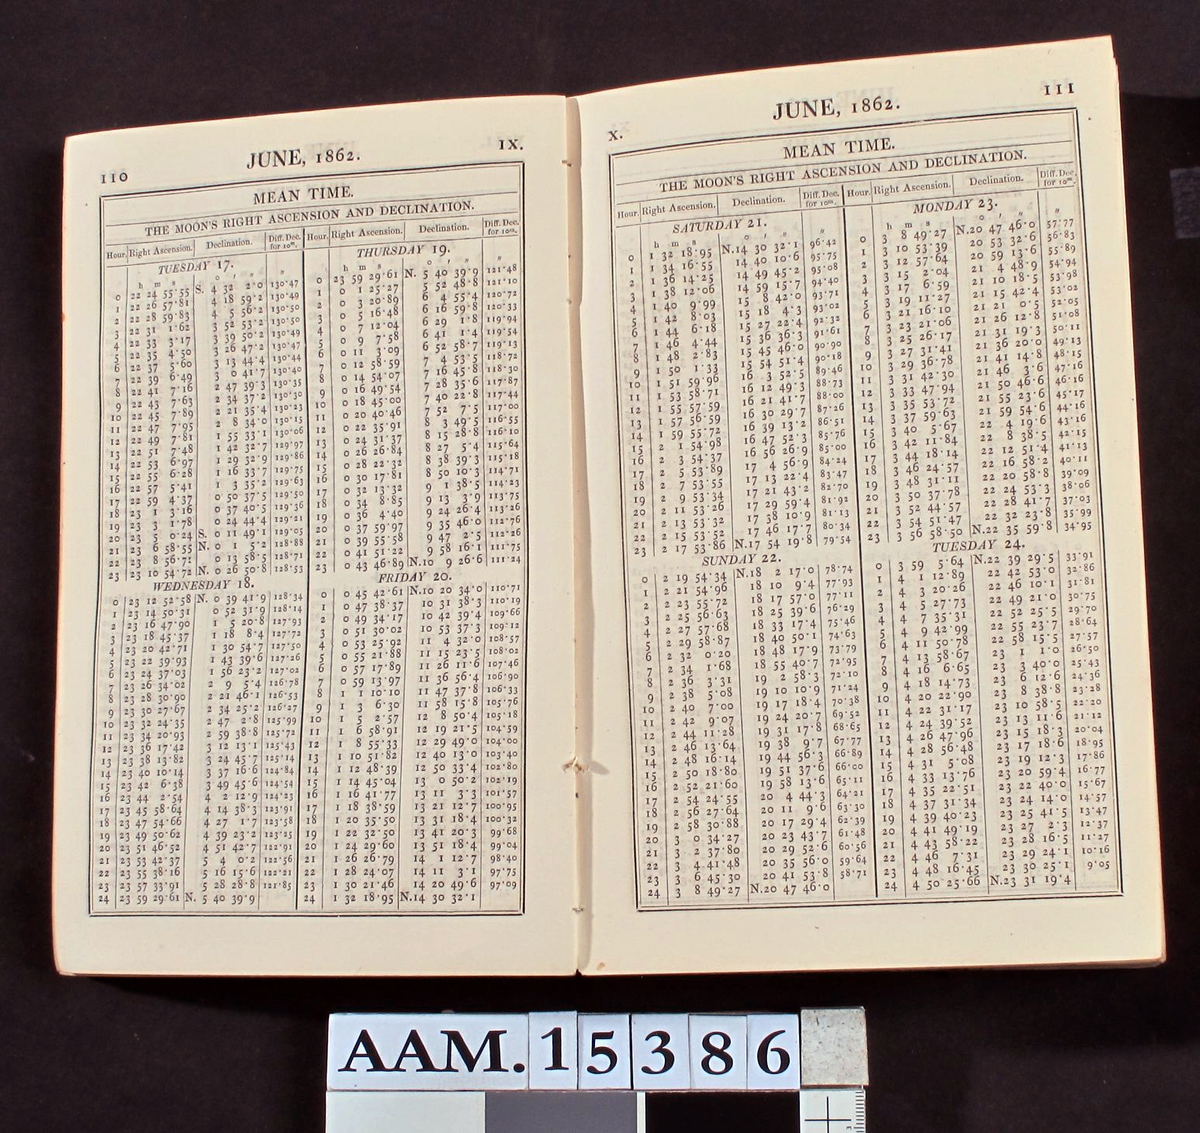 110
JUNE, 1862.
IX.
MEAN TIME.
THE MOON'S RIGHT ASCENSION AND DECLINATION.
Hour. Right Ascension. Declination. Diff. Dec. for 10m.
TUESDAY 17.
h m s ° ′ ″ ″
0 22 24 55·55 S. 4 32 2·0 130·47
1 22 26 57·81 4 18 59·2 130·49
2 22 28 59·83 4 5 56·2 130·50
3 22 31 1·62 3 52 53·2 130·50
4 22 33 3·17 3 39 50·2 130·49
5 22 35 4·50 3 26 47·2 130·47
6 22 37 5·60 3 13 44·4 130·44
7 22 39 6·49 3 0 41·7 130·40
8 22 41 7·16 2 47 39·3 130·35
9 22 43 7·63 2 34 37·2 130·30
10 22 45 7·89 2 21 35·4 130·23
11 22 47 7·95 2 8 34·0 130·15
12 22 49 7·81 1 55 33·1 130·06
13 22 51 7·48 1 42 32·7 129·97
14 22 53 6·97 1 29 32·9 129·86
15 22 55 6·28 1 16 33·7 129·75
16 22 57 5·41 1 3 35·2 129·63
17 22 59 4·37 0 50 37·5 129·50
18 23 1 3·16 0 37 40·5 129·36
19 23 3 1·78 0 24 44·4 129·21
20 23 5 0·24 S. 0 11 49·1 129·05
21 23 6 58·55 N. 0 1 5·2 128·88
22 23 8 56·71 0 13 58·5 128·71
23 23 10 54·72 N. 0 26 50·8 128·53
WEDNESDAY 18.
0 23 12 52·58 N. 0 39 41·9 128·34
1 23 14 50·31 0 52 31·9 128·14
2 23 16 47·90 1 5 20·8 127·93
3 23 18 45·37 1 18 8·4 127·72
4 23 20 42·71 1 30 54·7 127·50
5 23 22 39·93 1 43 39·6 127·26
6 23 24 37·03 1 56 23·2 127·02
7 23 26 34·02 2 9 5·4 126·78
8 23 28 30·90 2 21 46·1 126·53
9 23 30 27·67 2 34 25·2 126·27
10 23 32 24·35 2 47 2·8 125·99
11 23 34 20·93 2 59 38·8 125·72
12 23 36 17·42 3 12 13·1 125·43
13 23 38 13·82 3 24 45·7 125·14
14 23 40 10·14 3 37 16·6 124·84
15 23 42 6·38 3 49 45·6 124·54
16 23 44 2·54 4 2 12·9 124·23
17 23 45 58·64 4 14 38·3 123·91
18 23 47 54·66 4 27 1·7 123·58
19 23 49 50·62 4 39 23·2 123·25
20 23 51 46·52 4 51 42·7 122·91
21 23 53 42·37 5 4 0·2 122·56
22 23 55 38·16 5 16 15·6 122·21
23 23 57 33·91 5 28 28·8 121·85
24 23 59 29·61 N. 5 40 39·9
Hour. Right Ascension. Declination. Diff. Dec. for 10m.
THURSDAY 19.
h m s ° ′ ″ ″
0 23 59 29·61 N. 5 40 39·9 121·48
1 0 1 25·27 5 52 48·8 121·10
2 0 3 20·89 6 4 55·4 120·72
3 0 5 16·48 6 16 59·8 120·33
4 0 7 12·04 6 29 1·8 119·94
5 0 9 7·58 6 41 1·4 119·54
6 0 11 3·09 6 52 58·7 119·13
7 0 12 58·59 7 4 53·5 118·72
8 0 14 54·07 7 16 45·8 118·30
9 0 16 49·54 7 28 35·6 117·87
10 0 18 45·00 7 40 22·8 117·44
11 0 20 40·46 7 52 7·5 117·00
12 0 22 35·91 8 3 49·5 116·55
13 0 24 31·37 8 15 28·8 116·10
14 0 26 26·84 8 27 5·4 115·64
15 0 28 22·32 8 38 39·3 115·18
16 0 30 17·81 8 50 10·3 114·71
17 0 32 13·32 9 1 38·5 114·23
18 0 34 8·85 9 13 3·9 113·75
19 0 36 4·40 9 24 26·4 113·26
20 0 37 59·97 9 35 46·0 112·76
21 0 39 55·58 9 47 2·5 112·26
22 0 41 51·22 9 58 16·1 111·75
23 0 43 46·89 N.10 9 26·6 111·24
FRIDAY 20.
0 0 45 42·61 N.10 20 34·0 110·71
1 0 47 38·37 10 31 38·3 110·19
2 0 49 34·17 10 42 39·4 109·66
3 0 51 30·02 10 53 37·3 109·12
4 0 53 25·92 11 4 32·0 108·57
5 0 55 21·88 11 15 23·5 108·02
6 0 57 17·89 11 26 11·6 107·46
7 0 59 13·97 11 36 56·4 106·90
8 1 1 10·10 11 47 37·8 106·33
9 1 3 6·30 11 58 15·8 105·76
10 1 5 2·57 12 8 50·4 105·18
11 1 6 58·91 12 19 21·5 104·59
12 1 8 55·33 12 29 49·0 104·00
13 1 10 51·82 12 40 13·0 103·40
14 1 12 48·39 12 50 33·4 102·80
15 1 14 45·04 13 0 50·2 102·19
16 1 16 41·77 13 11 3·3 101·57
17 1 18 38·59 13 21 12·7 100·95
18 1 20 35·50 13 31 18·4 100·32
19 1 22 32·50 13 41 20·3 99·68
20 1 24 29·60 13 51 18·4 99·04
21 1 26 26·79 14 1 12·7 98·40
22 1 28 24·07 14 11 3·1 97·75
23 1 30 21·46 14 20 49·6 97·09
24 1 32 18·95 N.14 30 32·1
X.
JUNE, 1862.
111
MEAN TIME.
THE MOON'S RIGHT ASCENSION AND DECLINATION.
Hour. Right Ascension. Declination. Diff. Dec. for 10m.
SATURDAY 21.
h m s ° ′ ″ ″
0 1 32 18·95 N.14 30 32·1 96·42
1 1 34 16·55 14 40 10·6 95·75
2 1 36 14·25 14 49 45·2 95·08
3 1 38 12·06 14 59 15·7 94·40
4 1 40 9·99 15 8 42·0 93·71
5 1 42 8·03 15 18 4·3 93·02
6 1 44 6·18 15 27 22·4 92·32
7 1 46 4·44 15 36 36·3 91·61
8 1 48 2·83 15 45 46·0 90·90
9 1 50 1·33 15 54 51·4 90·18
10 1 51 59·96 16 3 52·5 89·46
11 1 53 58·71 16 12 49·3 88·73
12 1 55 57·59 16 21 41·7 88·00
13 1 57 56·59 16 30 29·7 87·26
14 1 59 55·72 16 39 13·2 86·51
15 2 1 54·98 16 47 52·3 85·76
16 2 3 54·37 16 56 26·9 85·00
17 2 5 53·89 17 4 56·9 84·24
18 2 7 53·55 17 13 22·4 83·47
19 2 9 53·34 17 21 43·2 82·70
20 2 11 53·26 17 29 59·4 81·92
21 2 13 53·32 17 38 10·9 81·13
22 2 15 53·52 17 46 17·7 80·34
23 2 17 53·86 N.17 54 19·8 79·54
SUNDAY 22.
0 2 19 54·34 N.18 2 17·0 78·74
1 2 21 54·96 18 10 9·4 77·93
2 2 23 55·72 18 17 57·0 77·11
3 2 25 56·63 18 25 39·6 76·29
4 2 27 57·68 18 33 17·4 75·46
5 2 29 58·87 18 40 50·1 74·63
6 2 32 0·20 18 48 17·9 73·79
7 2 34 1·68 18 55 40·7 72·95
8 2 36 3·31 19 2 58·3 72·10
9 2 38 5·08 19 10 10·9 71·24
10 2 40 7·00 19 17 18·4 70·38
11 2 42 9·07 19 24 20·7 69·52
12 2 44 11·28 19 31 17·8 68·65
13 2 46 13·64 19 38 9·7 67·77
14 2 48 16·14 19 44 56·3 66·89
15 2 50 18·80 19 51 37·6 66·00
16 2 52 21·60 19 58 13·6 65·11
17 2 54 24·55 20 4 44·3 64·21
18 2 56 27·64 20 11 9·6 63·30
19 2 58 30·88 20 17 29·4 62·39
20 3 0 34·27 20 23 43·7 61·48
21 3 2 37·80 20 29 52·6 60·56
22 3 4 41·48 20 35 56·0 59·64
23 3 6 45·30 20 41 53·8 58·71
24 3 8 49·27 N.20 47 46·0
Hour. Right Ascension. Declination. Diff. Dec. for 10m.
MONDAY 23.
h m s ° ′ ″ ″
0 3 8 49·27 N.20 47 46·0 57·77
1 3 10 53·39 20 53 32·6 56·83
2 3 12 57·64 20 59 13·6 55·89
3 3 15 2·04 21 4 48·9 54·94
4 3 17 6·59 21 10 18·5 53·98
5 3 19 11·27 21 15 42·4 53·02
6 3 21 16·10 21 21 0·5 52·05
7 3 23 21·06 21 26 12·8 51·08
8 3 25 26·17 21 31 19·3 50·11
9 3 27 31·41 21 36 20·0 49·13
10 3 29 36·78 21 41 14·8 48·15
11 3 31 42·30 21 46 3·6 47·16
12 3 33 47·94 21 50 46·6 46·16
13 3 35 53·72 21 55 23·6 45·17
14 3 37 59·63 21 59 54·6 44·16
15 3 40 5·67 22 4 19·6 43·16
16 3 42 11·84 22 8 38·5 42·15
17 3 44 18·14 22 12 51·4 41·13
18 3 46 24·57 22 16 58·2 40·11
19 3 48 31·11 22 20 58·8 39·09
20 3 50 37·78 22 24 53·3 38·06
21 3 52 44·57 22 28 41·7 37·03
22 3 54 51·47 22 32 23·8 35·99
23 3 56 58·50 N.22 35 59·8 34·95
TUESDAY 24.
0 3 59 5·64 N.22 39 29·5 33·91
1 4 1 12·89 22 42 53·0 32·86
2 4 3 20·26 22 46 10·1 31·81
3 4 5 27·73 22 49 21·0 30·75
4 4 7 35·31 22 52 25·5 29·70
5 4 9 42·99 22 55 23·7 28·64
6 4 11 50·78 22 58 15·5 27·57
7 4 13 58·67 23 1 1·0 26·50
8 4 16 6·65 23 3 40·0 25·43
9 4 18 14·73 23 6 12·6 24·36
10 4 20 22·90 23 8 38·8 23·28
11 4 22 31·17 23 10 58·5 22·20
12 4 24 39·52 23 13 11·6 21·12
13 4 26 47·96 23 15 18·3 20·04
14 4 28 56·48 23 17 18·6 18·95
15 4 31 5·08 23 19 12·3 17·86
16 4 33 13·76 23 20 59·4 16·77
17 4 35 22·51 23 22 40·0 15·67
18 4 37 31·34 23 24 14·0 14·57
19 4 39 40·23 23 25 41·5 13·47
20 4 41 49·19 23 27 2·3 12·37
21 4 43 58·22 23 28 16·5 11·27
22 4 46 7·31 23 29 24·1 10·16
23 4 48 16·45 23 30 25·1 9·05
24 4 50 25·66 N.23 31 19·4
AAM.15386